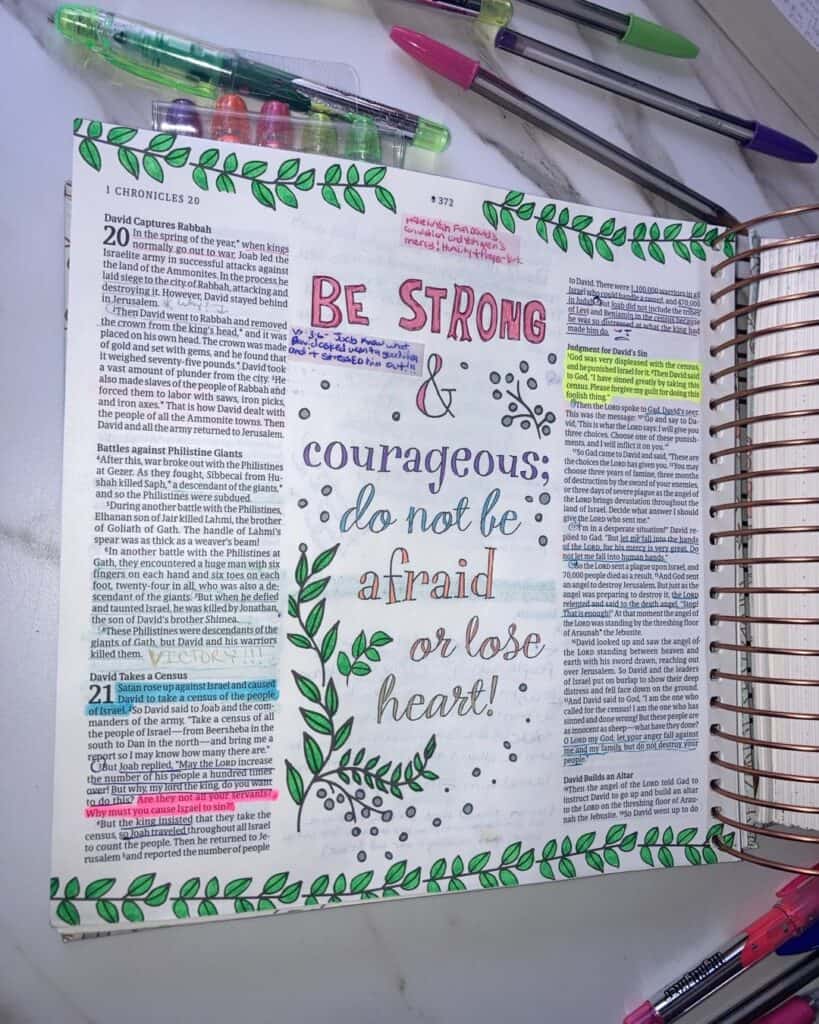 1 CHRONICLES 20
372
David Captures Rabbah
20 In the spring of the year, when kings
normally go out to war, Joab led the
Israelite army in successful attacks against
the land of the Ammonites. In the process he
laid siege to the city of Rabbah, attacking and
destroying it. However, David stayed behind
in Jerusalem.
²Then David went to Rabbah and removed
the crown from the king's head, and it was
placed on his own head. The crown was made
of gold and set with gems, and he found that
it weighed seventy-five pounds. David took
a vast plunder from the city. ³He
also made slaves of the people of Rabbah and
forced them to labor with saws, iron picks,
and iron axes. That is how David dealt with
the people of all the Ammonite towns. Then
David and all the army returned to Jerusalem.
Battles against Philistine Giants
⁴After this, war broke out with the Philistines
at Gezer. As they fought, Sibbecai from Hu-
shah killed Saph, a descendant of the giants,
and so the Philistines were subdued.
⁵During another battle with the Philistines,
Elhanan son of Jair killed Lahmi, the brother
of Goliath of Gath. The handle of Lahmi's
spear was as thick as a weaver's beam!
⁶In another battle with the Philistines at
Gath, they encountered a huge man with six
fingers on each hand and six toes on each
foot, twenty-four in all, who was also a de-
scendant of the giants. ⁷But when he defied
and taunted Israel, he was killed by Jonathan,
the son of David's brother Shimea.
⁸These Philistines were descendants of the
giants of Gath, but David and his warriors
killed them. VICTORY!!!
David Takes a Census
21 Satan rose up against Israel and caused
David to take a census of the people
of Israel. ²So David said to Joab and the com-
manders of the army, "Take a census of all
the people of Israel—from Beersheba in the
south to Dan in the north—and bring me a
report so I may know how many there are."
³But Joab replied, "May the LORD increase
the number of his people a hundred times
over! But why, my lord the king, do you want
to do this? Are they not all your servants?
Why must you cause Israel to sin?"
⁴But the king insisted that they take the
census, so Joab traveled throughout all Israel
to count the people. Then he returned to Je-
rusalem ⁵and reported the number of people
BE STRONG
&
courageous;
do not be
afraid
or lose
heart!
to David. There were 1,100,000 warriors in all
Israel who could handle a sword, and 470,000
in Judah. ⁶But Joab did not include the tribes
of Levi and Benjamin in the census because
he was so distressed at what the king had
made him do.
Judgment for David's Sin
⁷God was very displeased with the census,
and he punished Israel for it. ⁸Then David said
to God, "I have sinned greatly by taking this
census. Please forgive my guilt for doing this
foolish thing."
⁹Then the LORD spoke to Gad, David's seer.
This was the message: ¹⁰"Go and say to Da-
vid, 'This is what the LORD says: I will give you
three choices. Choose one of these punish-
ments, and I will inflict it on you.'"
¹¹So Gad came to David and said, "These are
the choices the LORD has given you. ¹²You may
choose three years of famine, three months
of destruction by the sword of your enemies,
or three days of severe plague as the angel of
the LORD brings devastation throughout the
land of Israel. Decide what answer I should
give the LORD who sent me."
¹³"I'm in a desperate situation!" David re-
plied to Gad. "But let me fall into the hands
of the LORD, for his mercy is very great. Do
not let me fall into human hands."
¹⁴So the LORD sent a plague upon Israel, and
70,000 people died as a result. ¹⁵And God sent
an angel to destroy Jerusalem. But just as the
angel was preparing to destroy it, the LORD
relented and said to the death angel, "Stop!
That is enough!" At that moment the angel of
the LORD was standing by the threshing floor
of Araunah the Jebusite.
¹⁶David looked up and saw the angel of
the LORD standing between heaven and
earth with his sword drawn, reaching out
over Jerusalem. So David and the leaders
of Israel put on burlap to show their deep
distress and fell face down on the ground.
¹⁷And David said to God, "I am the one who
called for the census! I am the one who has
sinned and done wrong! But these people are
as innocent as sheep—what have they done?
O LORD my God, let your anger fall against
me and my family, but do not destroy your
people."
David Builds an Altar
¹⁸Then the angel of the LORD told Gad to
instruct David to go up and build an altar
to the LORD on the threshing floor of Arau-
nah the Jebusite. ¹⁹So David went up to do